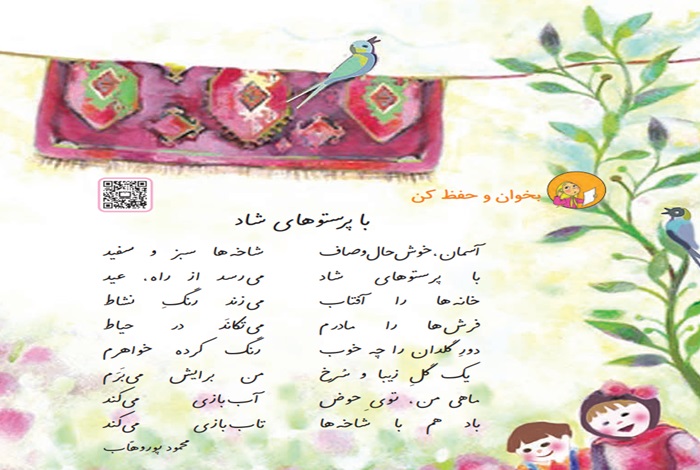 بخوان و حفظ کن
با پرستوهای شاد
آسمان، خوش‌حال و صاف شاخه‌ها سبز و سفید
با پرستوهای شاد می‌رسد از راه، عید
خانه‌ها را آفتاب می‌زند رنگِ نشاط
فرش‌ها را مادرم می‌تکانَد در حیاط
دورِ گلدان را چه خوب رنگ کرده خواهرم
یک گلِ زیبا و سُرخ من برایش می‌بَرَم
ماهی من، توی حوض آب‌بازی می‌کند
باد هم با شاخه‌ها تاب‌بازی می‌کند
محمود پوروهّاب